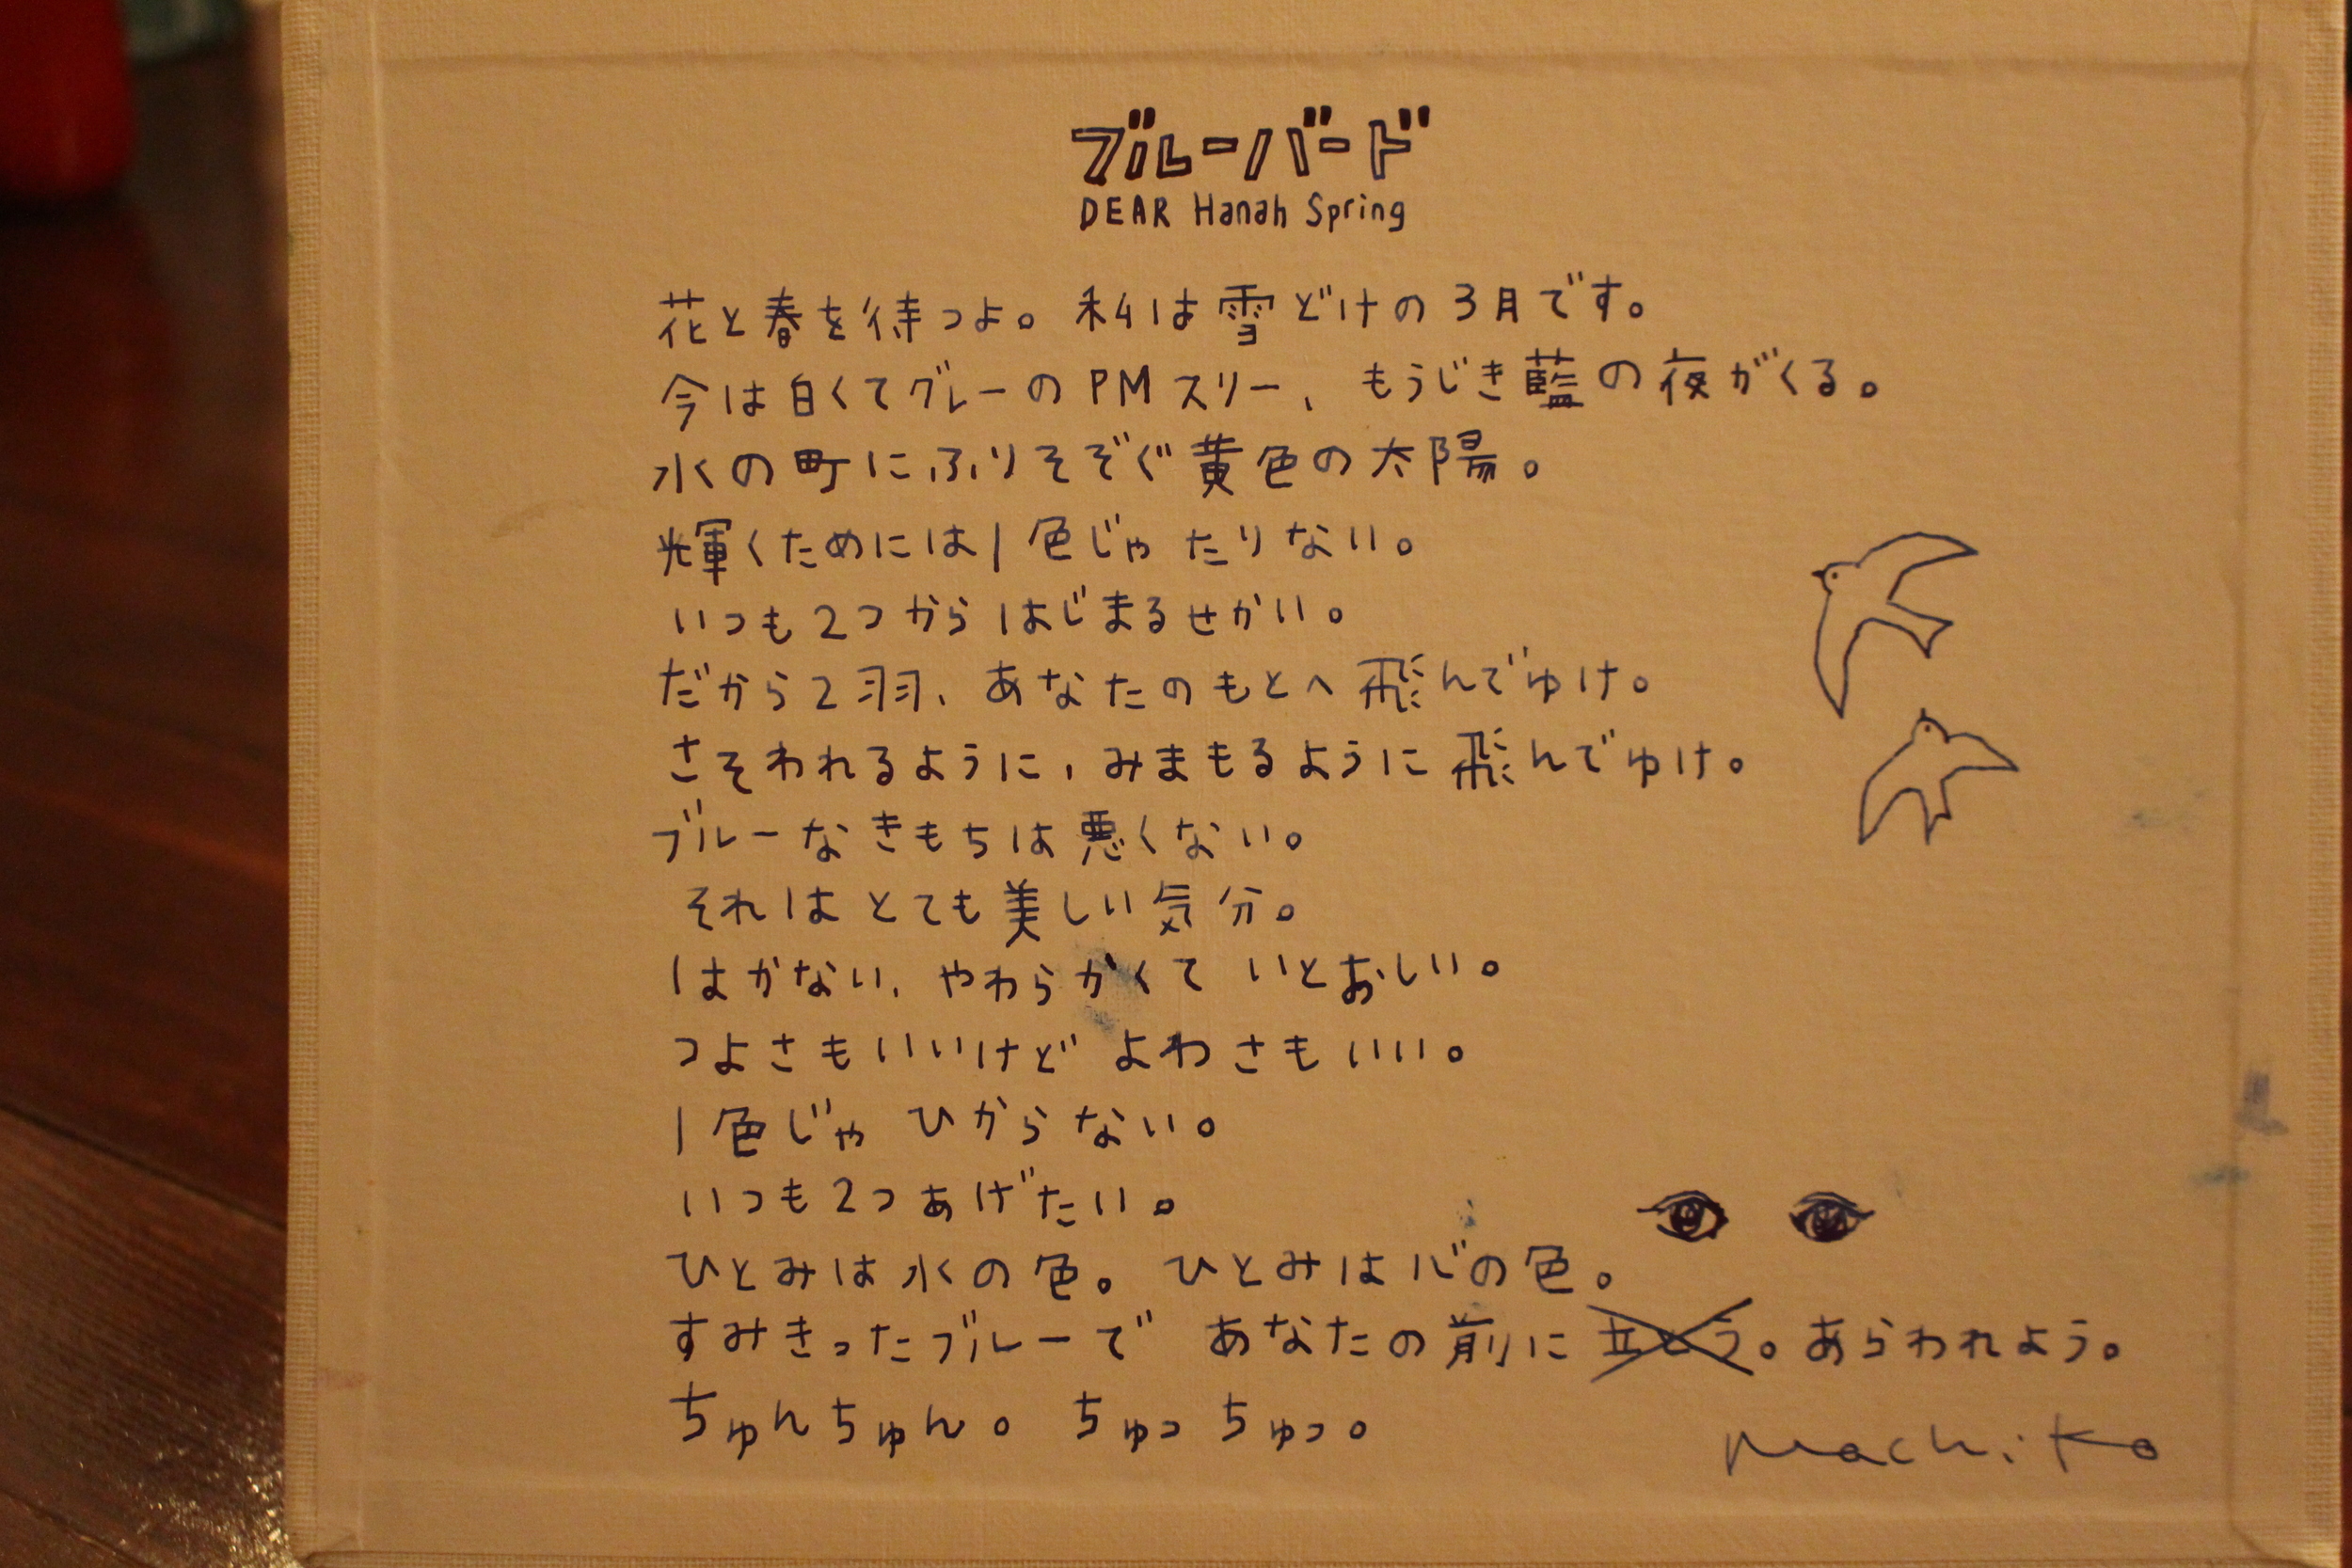 ブルーバード
DEAR Hanah Spring
花と春を待つよ。私は雪どけの3月です。
今は白くてグレーのPMスリー、もうじき藍の夜がくる。
水の町にふりそそぐ黄色の太陽。
輝くためには1色じゃたりない。
いつも2つからはじまるせかい。
だから2羽、あなたのもとへ飛んでゆけ。
さそわれるように、みまもるように飛んでゆけ。
ブルーなきもちは悪くない。
それはとても美しい気分。
はかない、やわらかくていとおしい。
つよさもいいけどよわさもいい。
1色じゃひからない。
いつも2つあげたい。
ひとみは水の色。ひとみは心の色。
すみきったブルーで あなたの前に立とう。あらわれよう。
ちゅんちゅん。ちゅっちゅっ。
Machiko